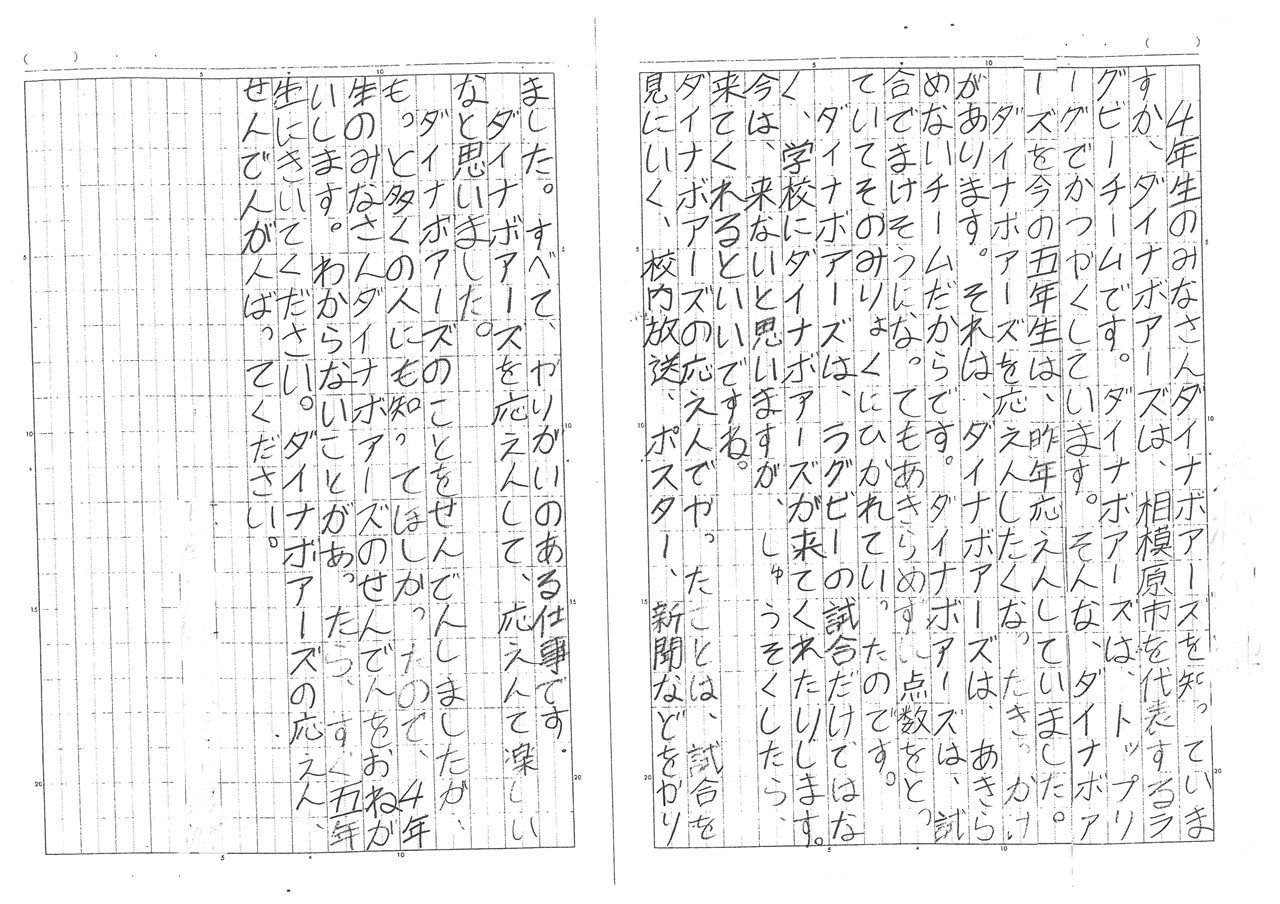 4年生のみなさんダイナボアーズを知っていま
すか、ダイナボアーズは、相模原市を代表するラ
グビーチームです。ダイナボアーズは、トップリ
ーグでかつやくしています。そんな、ダイナボア
ーズを今の五年生は、昨年応えんしていました。
ダイナボアーズを応えんしたくなったきっかけ
があります。それは、ダイナボアーズは、あきら
めないチームだからです。ダイナボアーズは、試
合でまけそうになってもあきらめずに点数をとっ
ていてそのみりょくにひかれていったのです。
ダイナボアーズは、ラグビーの試合だけではな
く、学校にダイナボアーズが来てくれたりします。
今は、来ないと思いますが、しゅうそくしたら、
来てくれるといいですね。
ダイナボアーズの応えんでやったことは、試合を
見にいく、校内放送、ポスター、新聞などをかり
ました。すべて、やりがいのある仕事です.
ダイナボアーズを応えんして、応えんて楽しい
なと思いました。
ダイナボアーズのことをせんでんしましたが、
もっと多くの人にも知ってほしかったので、4年
生のみなさんダイナボアーズのせんでんをおねが
いします。わからないことがあったら、すぐ五年
生にきいてください。ダイナボアーズの応えん、
せんでんがんばってください。
5
10
15
20
5
10
5
10
15
20
5
10